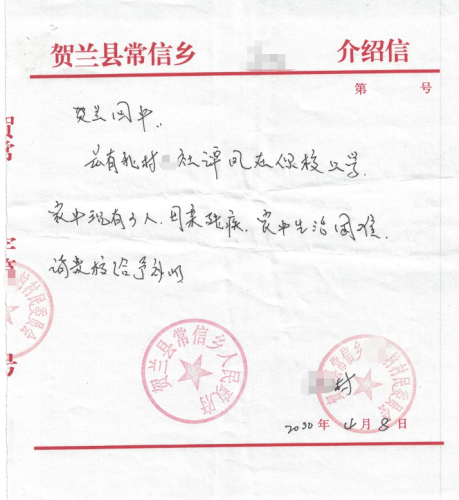 贺兰县常信乡 介绍信
第 号
贺兰回中:
兹有我村 社谭凤在你校上学,
家中现有5人,母亲残疾,家中生活困难,
请贵校给予补助
贺兰县常信乡人民政府
村
村民委员会
2000年4月8日